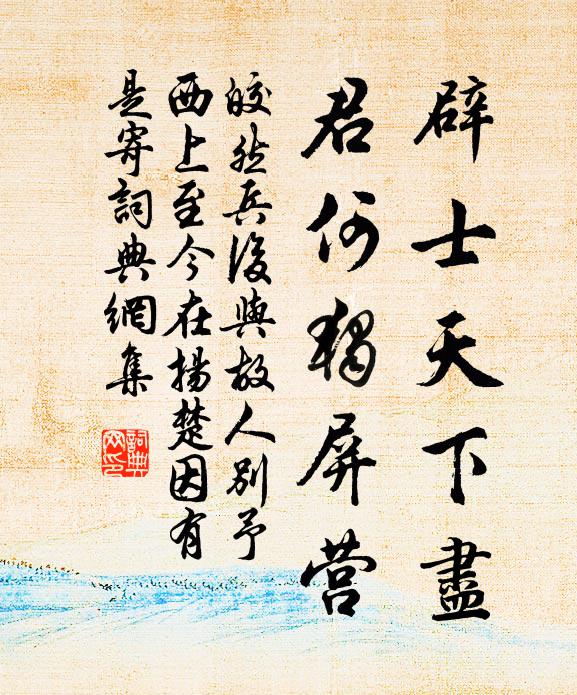 辟士天下盡
君何獨屏營
皎然兵後與故人別予
西上至今在揚楚因有
是寄詞典網集
詞典
网印